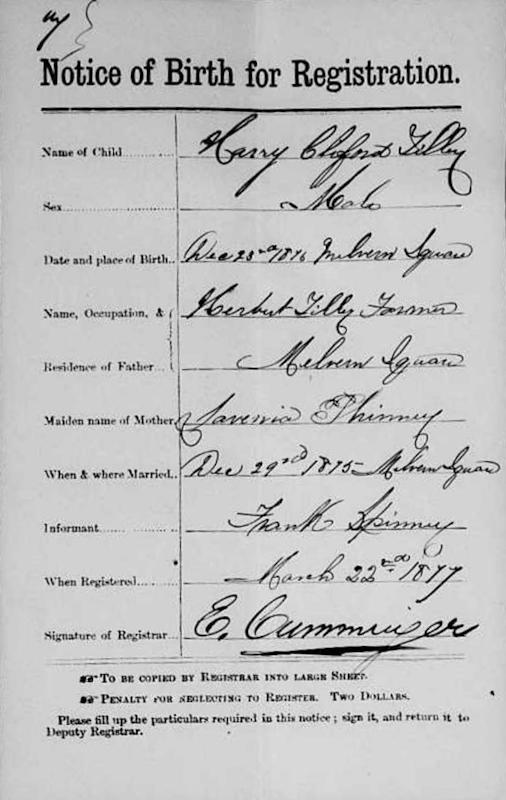 Notice of Birth for Registration.
Name of Child........... Harry Cliford Tilley
Sex........................ Male
Date and place of Birth.. Dec 23rd 1876 Melvern Square
Name, Occupation, & Herbert Tilley Farmer
Residence of Father... Melvern Square
Maiden name of Mother Phinney
When & where Married.. Dec 29nd 1875 Melvern Square
Informant.................. Frank Spinney
When Registered.......... March 22nd 1877
Signature of Registrar... E. Cumminger
TO BE COPIED BY REGISTRAR INTO LARGE SHEET.
PENALTY FOR NEGLECTING TO REGISTER. TWO DOLLARS.
Please fill up the particulars required in this notice; sign it, and return it to
Deputy Registrar.